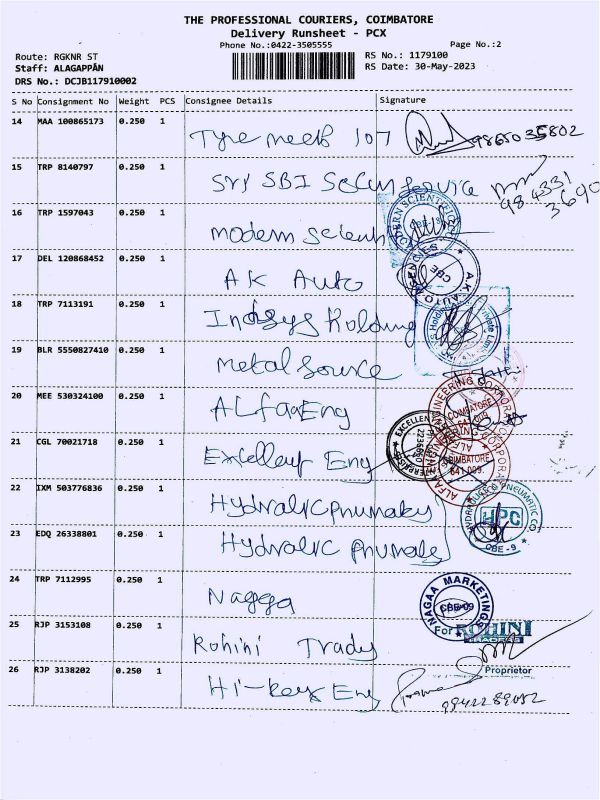 THE PROFESSIONAL COURIERS, COIMBATORE
Delivery Runsheet - PCX
Phone No.:0422-3505555 Page No.:2
Route: RGKNR ST RS No.: 1179100
Staff: ALAGAPPAN RS Date: 30-May-2023
DRS No.: DCJB117910002
S No Consignment No Weight PCS Consignee Details Signature
14 MAA 100865173 0.250 1 107 9865035802
15 TRP 8140797 0.250 1 Sri SBI Service 984331
3690
16 TRP 1597043 0.250 1 modern
17 DEL 120868452 0.250 1 AK Auto
18 TRP 7113191 0.250 1 Indsys Holding
19 BLR 5550827410 0.250 1 metal source
20 MEE 530324100 0.250 1 ALfaaEng
21 CGL 70021718 0.250 1 Excellent Eng
22 IXM 503776836 0.250 1
23 EDQ 26338801 0.250 1 Hydralic
24 TRP 7112995 0.250 1 Nagga
NAGAA MARKETING
CBE-09
25 RJP 3153108 0.250 1 Rohini Trady For ROHINI
Proprietor
26 RJP 3138202 0.250 1 Hi-key Eng
HPC
CBE-9
COIMBATORE
641 009.